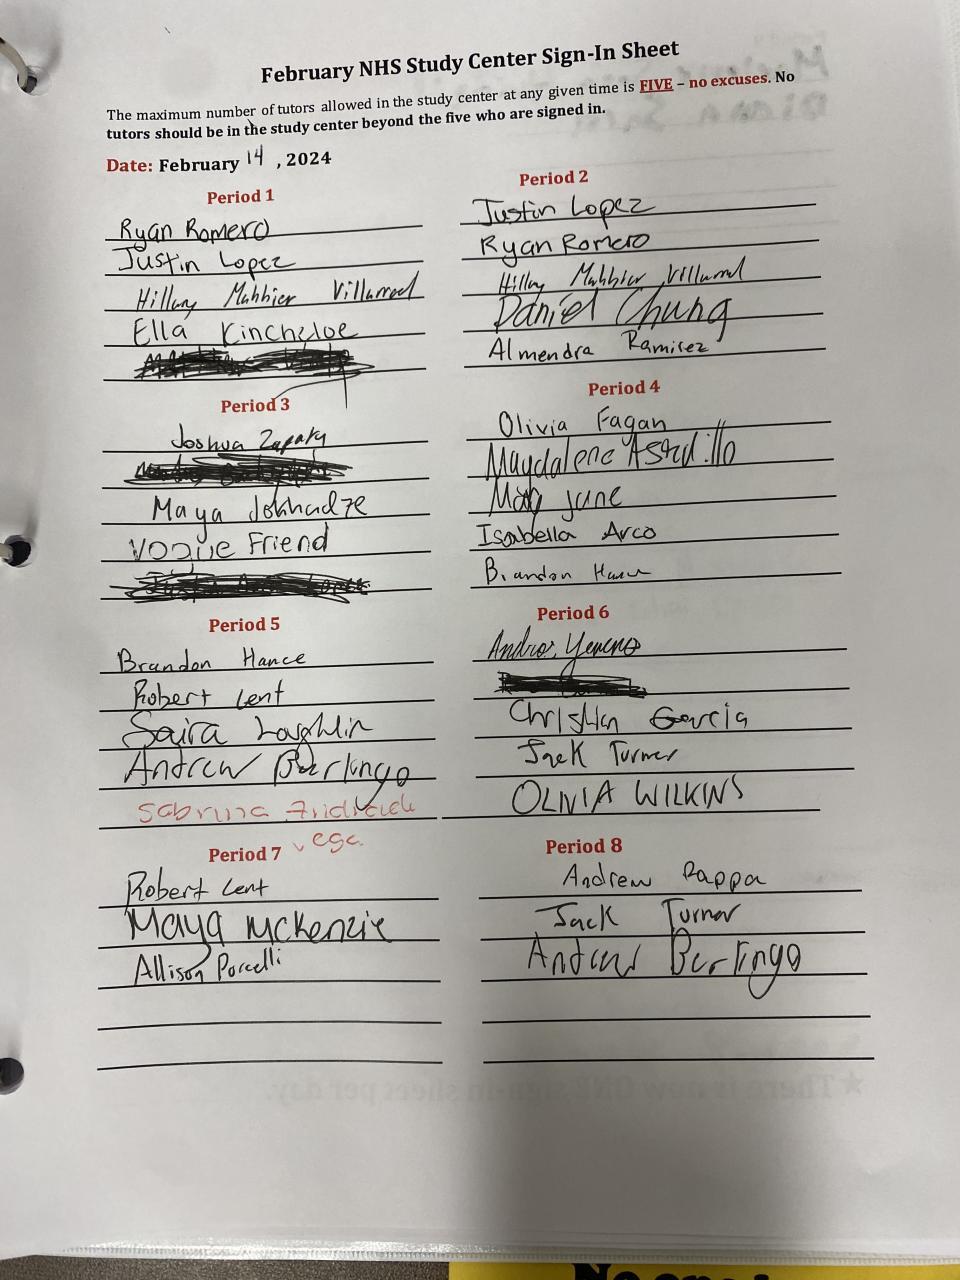 February NHS Study Center Sign-In Sheet
The maximum number of tutors allowed in the study center at any given time is FIVE – no excuses. No
tutors should be in the study center beyond the five who are signed in.
Date: February 14, 2024
Period 1
Ryan Romero
Justin Lopez
Hillary Mahbier Villarreal
Ella Kincheloe
Period 2
Justin Lopez
Ryan Romero
Hillary Mahbier Villarreal
Daniel Chung
Almendra Ramirez
Period 3
Joshua Zapata
Maya Jokhadze
Vogue Friend
Period 4
Olivia Fagan
Magdalene Astudillo
June
Isabella Arco
Brandon Hance
Period 5
Brandon Hance
Robert Lent
Saira Loughlin
Andrew Berlingo
Sabrina Andrade
Vega
Period 6
Christian Garcia
Jack Turner
OLIVIA WILKINS
Period 7
Robert Lent
Maya McKenzie
Allison Porcelli
Period 8
Andrew Pappa
Jack Turner
Andrew Berlingo
There is now ONE sign-in sheet per day.